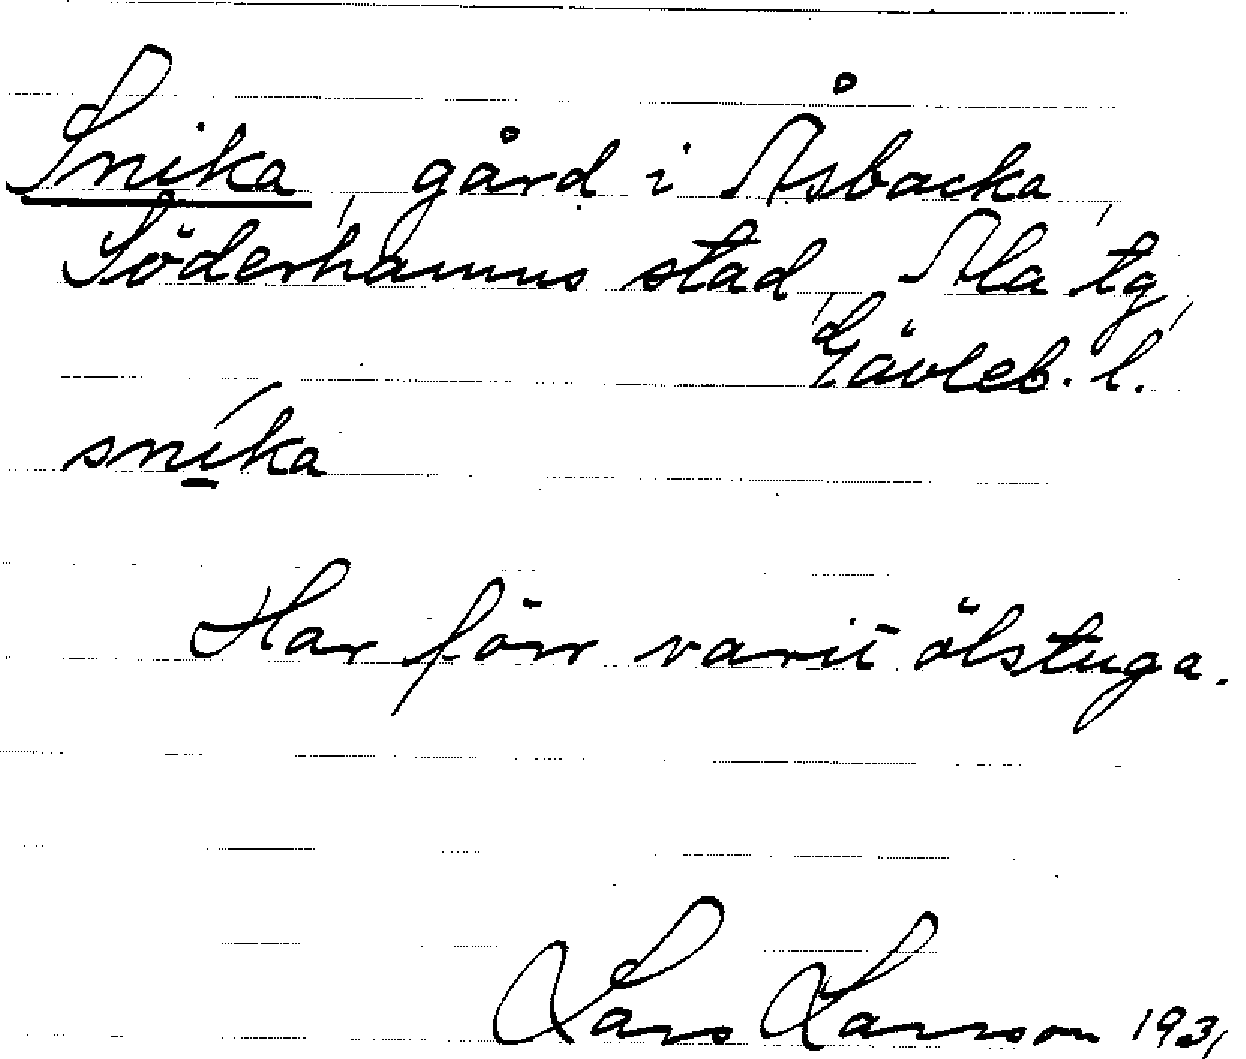 Snika, gård i Åsbacka,
Söderhamns stad, Ala tg,
Gävleb. l.
snika
Har förr varit ölstuga.
Lars Larsson 1931